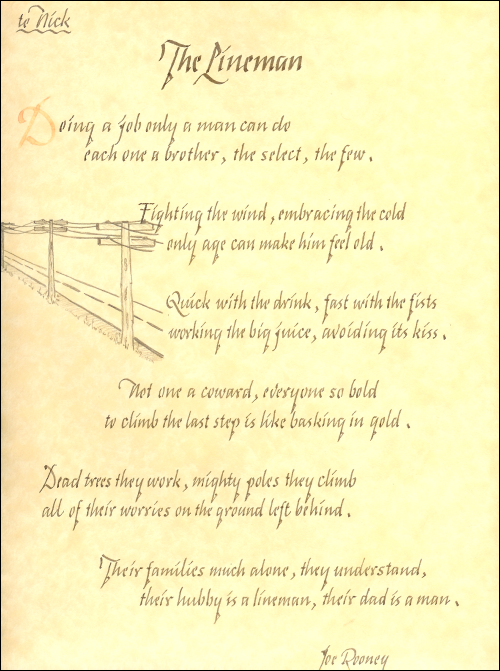 to Nick
The Lineman
Doing a job only a man can do
each one a brother, the select, the few.
Fighting the wind, embracing the cold
only age can make him feel old.
Quick with the drink, fast with the fists
working the big juice, avoiding its kiss.
Not one a coward, everyone so bold
to climb the last step is like basking in gold.
Dead trees they work, mighty poles they climb
all of their worries on the ground left behind.
Their families much alone, they understand,
their hubby is a lineman, their dad is a man.
Joe Rooney